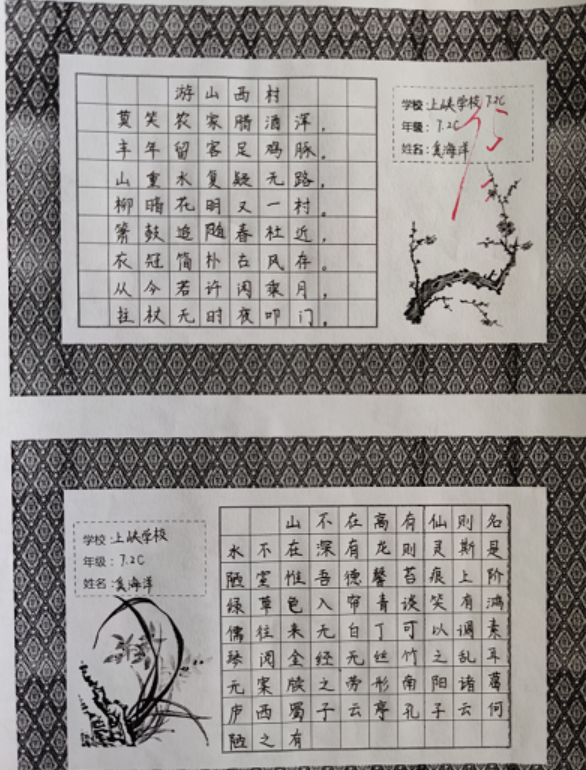 游山西村
莫笑农家腊酒浑，
丰年留客足鸡豚。
山重水复疑无路，
柳暗花明又一村。
箫鼓追随春社近，
衣冠简朴古风存。
从今若许闲乘月，
拄杖无时夜叩门。
学校：上峡学校 7.2C
年级：7.2C
姓名：海洋
95
学校：上峡学校
年级：7.2C
姓名：海洋
山不在高有仙则名
水不在深有龙则灵斯是
陋室惟吾德馨苔痕上阶
绿草色入帘青谈笑有鸿
儒往来无白丁可以调素
琴阅金经无丝竹之乱耳
无案牍之劳形南阳诸葛
庐西蜀子云亭孔子云何
陋之有